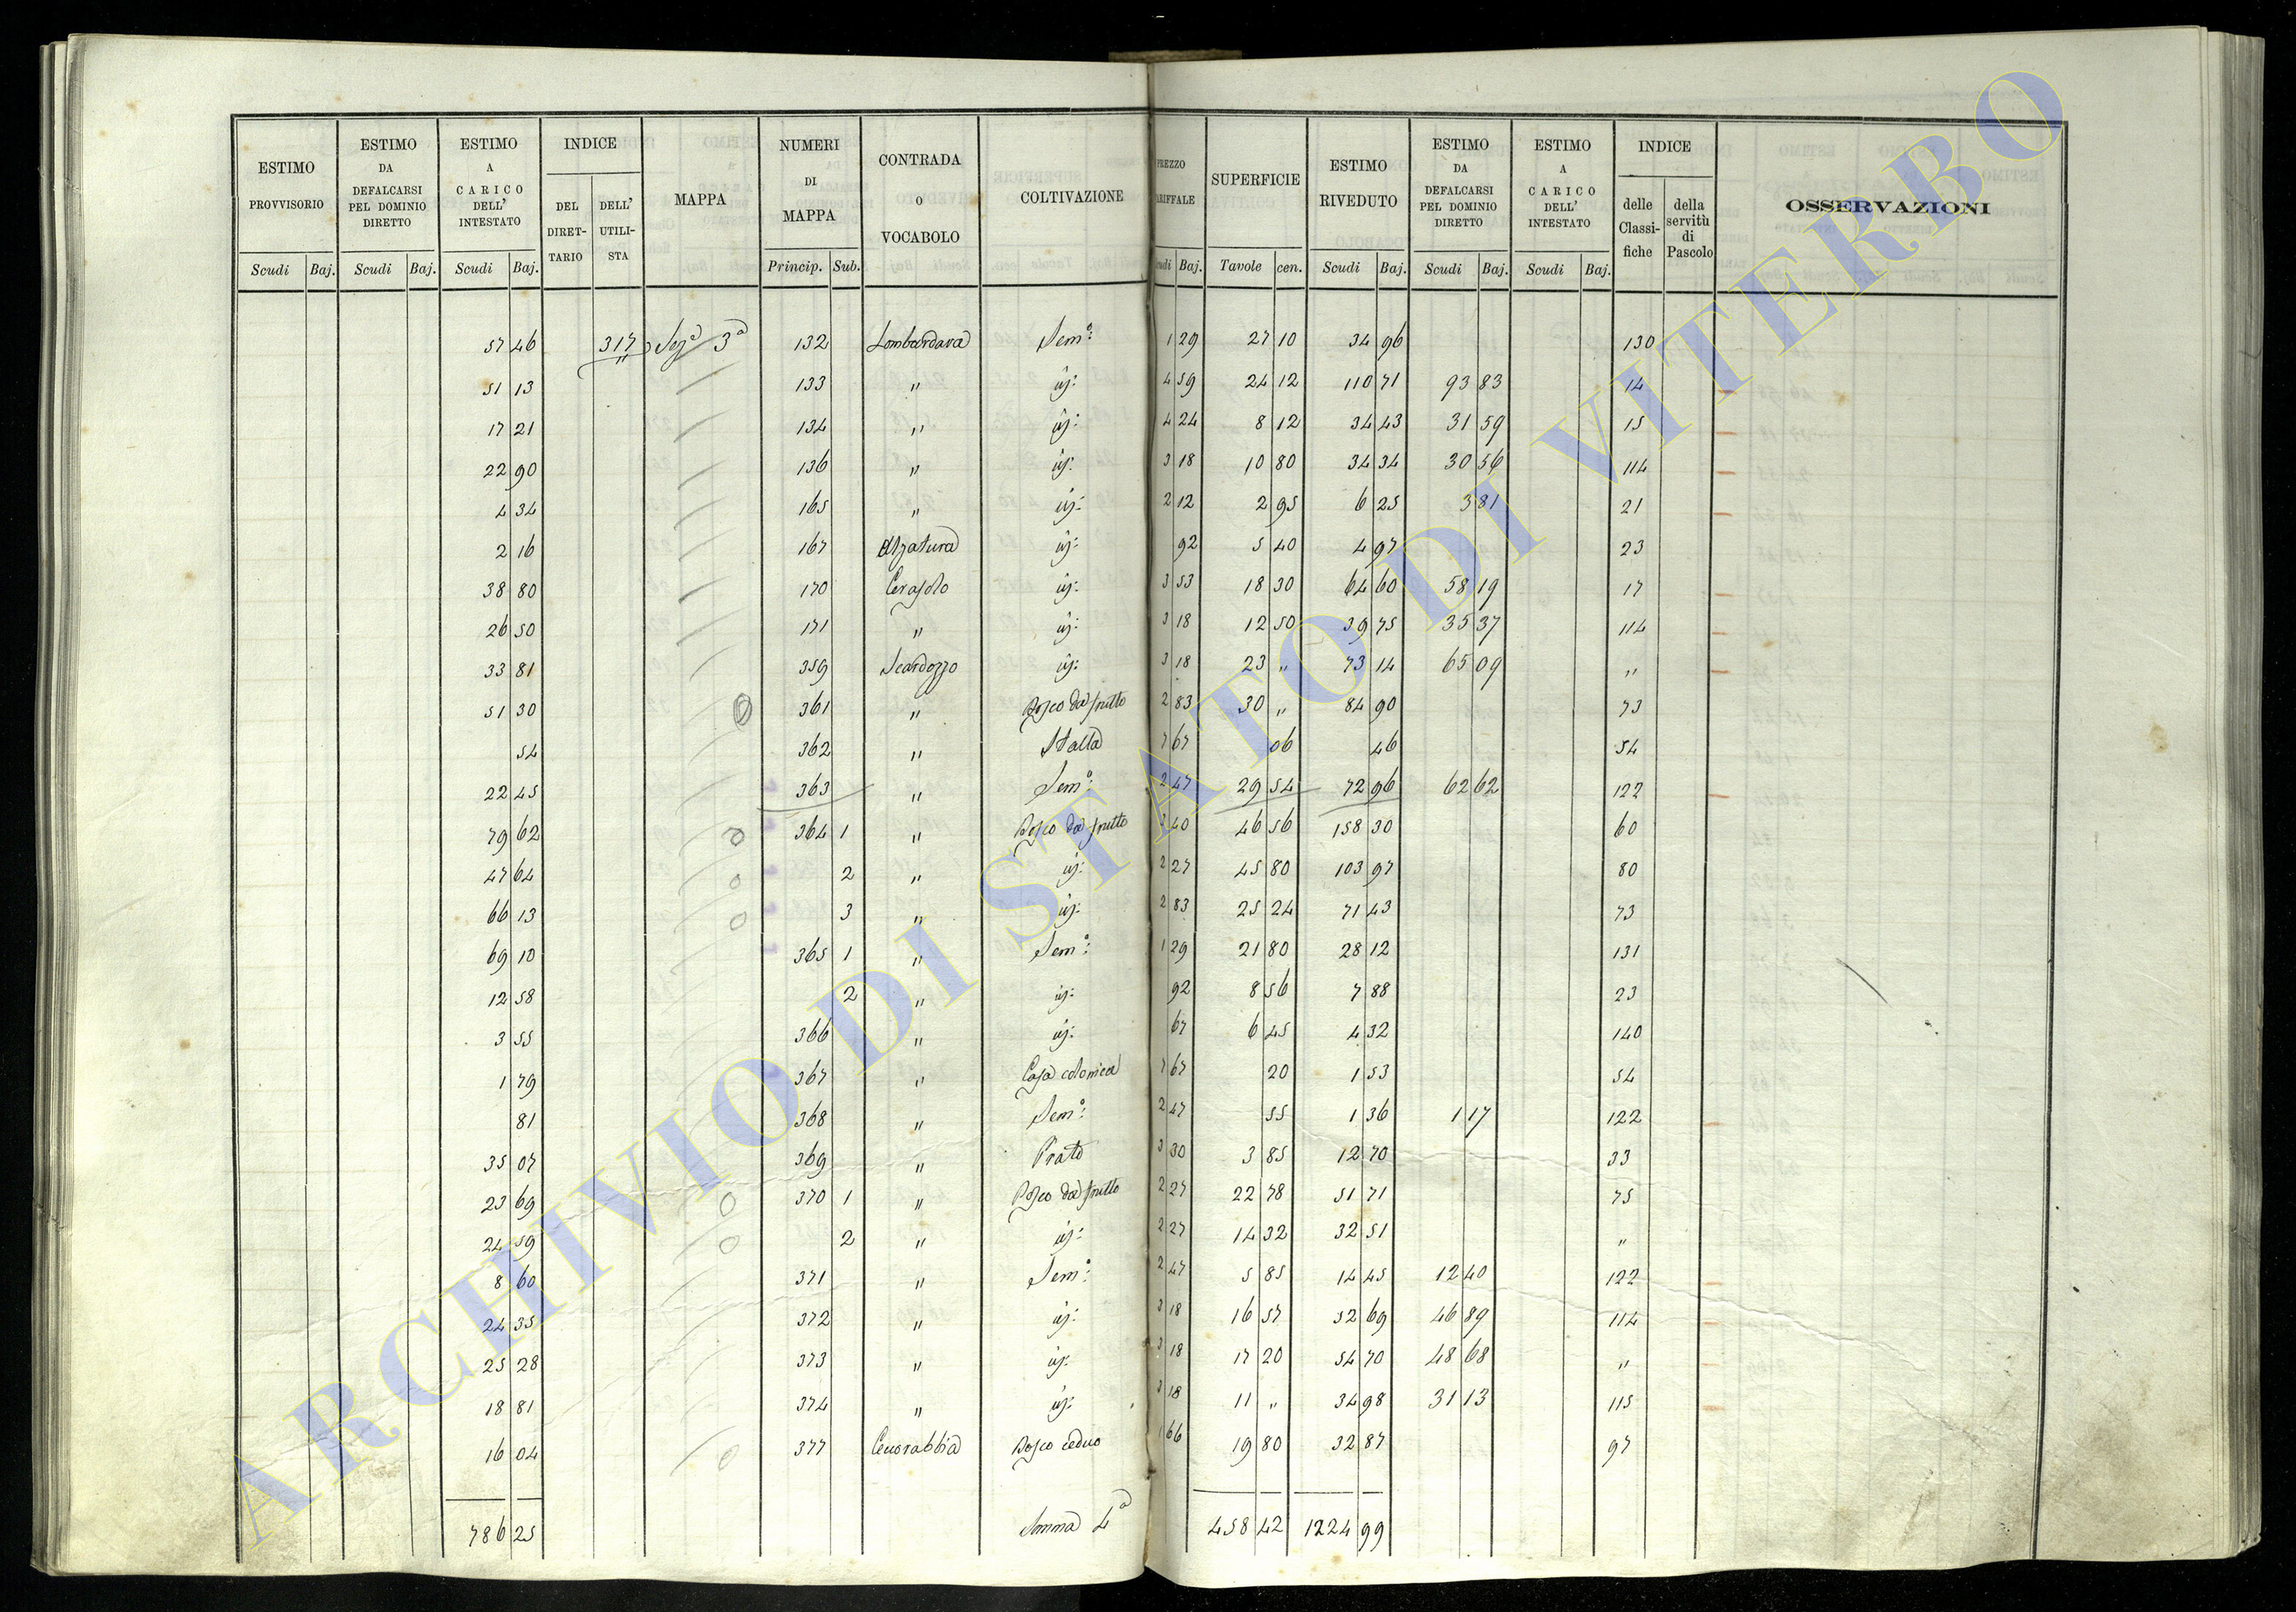 ESTIMO PROVVISORIO | ESTIMO DA DEFALCARSI PEL DOMINIO DIRETTO | ESTIMO A CARICO DELL' INTESTATO | INDICE | MAPPA | NUMERI DI MAPPA | CONTRADA O VOCABOLO | COLTIVAZIONE | PREZZO TARIFFALE | SUPERFICIE | ESTIMO RIVEDUTO | ESTIMO DA DEFALCARSI PEL DOMINIO DIRETTO | ESTIMO A CARICO DELL' INTESTATO | INDICE | OSSERVAZIONI
DEL DIRETTARIO | DELL' UTILISTA | delle Classifiche | della servitù di Pascolo
Scudi | Baj. | Scudi | Baj. | Scudi | Baj. | Princip. | Sub. | Scudi | Baj. | Tavole | cen. | Scudi | Baj. | Scudi | Baj. | Scudi | Baj.
57 46 | 317 | Seza 3a | 132 | Lombardara | Sem.o: | 1 29 | 27 10 | 34 96 | 130
51 13 | 133 | " | id: | 4 59 | 24 12 | 110 71 | 93 83 | 14
17 21 | 134 | " | id: | 4 24 | 8 12 | 34 43 | 31 59 | 15
22 90 | 136 | " | id: | 3 18 | 10 80 | 34 34 | 30 56 | 114
4 34 | 165 | " | id: | 2 12 | 2 95 | 6 25 | 3 81 | 21
2 16 | 167 | Alzatura | id: | 92 | 5 40 | 4 97 | 23
38 80 | 170 | Cerasolo | id: | 3 53 | 18 30 | 64 60 | 58 19 | 17
26 50 | 171 | " | id: | 3 18 | 12 50 | 39 75 | 35 37 | 114
33 81 | 359 | Scardozzo | id: | 3 18 | 23 " | 73 14 | 65 09 | "
51 30 | 361 | " | Bosco da frutto | 2 83 | 30 " | 84 90 | 73
54 | 362 | " | Stalla | 7 67 | 06 | 46 | 54
22 45 | 363 | " | Sem.o: | 2 47 | 29 54 | 72 96 | 62 62 | 122
79 62 | 364 1 | " | Bosco da frutto | 3 40 | 46 56 | 158 30 | 60
47 64 | 2 | " | id: | 2 27 | 45 80 | 103 97 | 80
66 13 | 3 | " | id: | 2 83 | 25 24 | 71 43 | 73
69 10 | 365 1 | " | Sem.o: | 1 29 | 21 80 | 28 12 | 131
12 58 | 2 | " | id: | 92 | 8 56 | 7 88 | 23
3 55 | 366 | " | id: | 67 | 6 45 | 4 32 | 140
1 79 | 367 | " | Casa colonica | 7 67 | 20 | 1 53 | 54
81 | 368 | " | Sem.o: | 2 47 | 55 | 1 36 | 1 17 | 122
35 07 | 369 | " | Prato | 3 30 | 3 85 | 12 70 | 33
23 69 | 370 1 | " | Bosco da frutto | 2 27 | 22 78 | 51 71 | 75
24 59 | 2 | " | id: | 2 27 | 14 32 | 32 51 | "
8 60 | 371 | " | Sem.o: | 2 47 | 5 85 | 14 45 | 12 40 | 122
24 35 | 372 | " | id: | 3 18 | 16 57 | 52 69 | 46 89 | 114
25 28 | 373 | " | id: | 3 18 | 17 20 | 54 70 | 48 68 | "
18 81 | 374 | " | id: | 3 18 | 11 " | 34 98 | 31 13 | 115
16 04 | 377 | Bosco ceduo | 1 66 | 19 80 | 32 87 | 97
786 25 | Somma 4a | 458 42 | 1224 99
ARCHIVIO DI STATO DI VITERBO